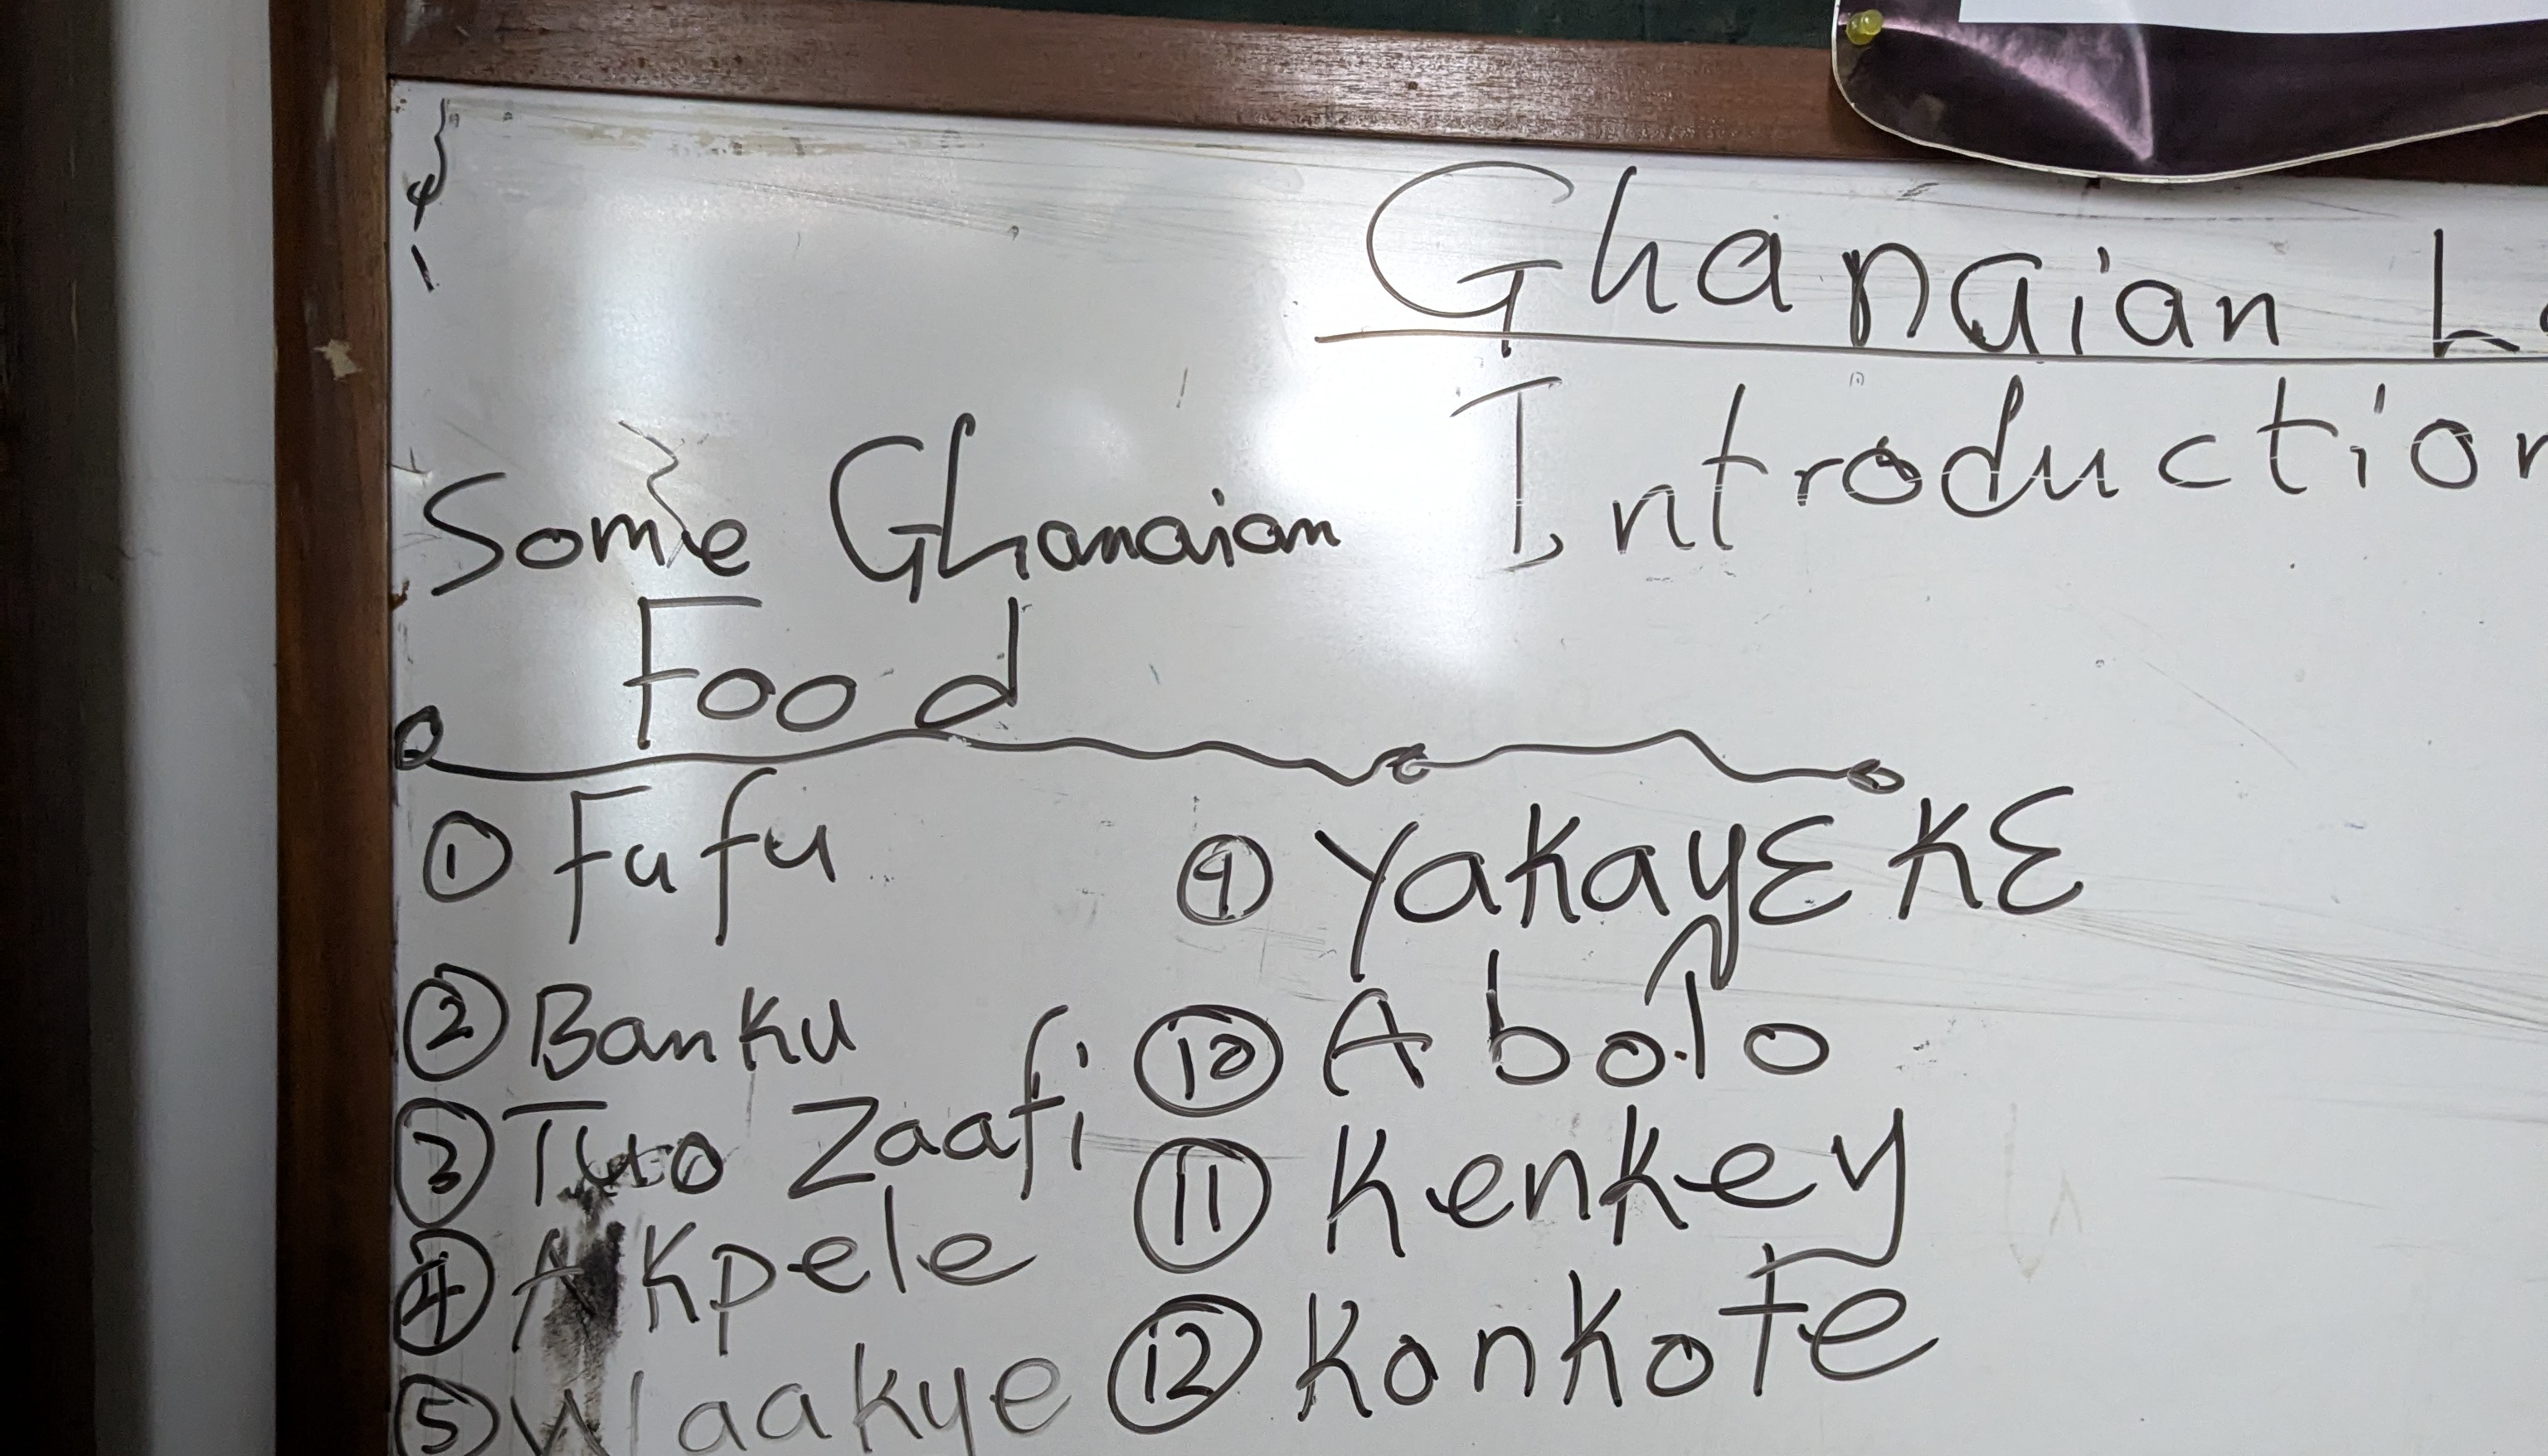 Ghanaian
Introduction
Some Ghanaian
Food
① Fufu
② Banku
③ Tuo Zaafi
④ Akpele
⑤ Waakye
⑨ YakayƐkƐ
⑩ Abolo
⑪ Kenkey
⑫ Konkote